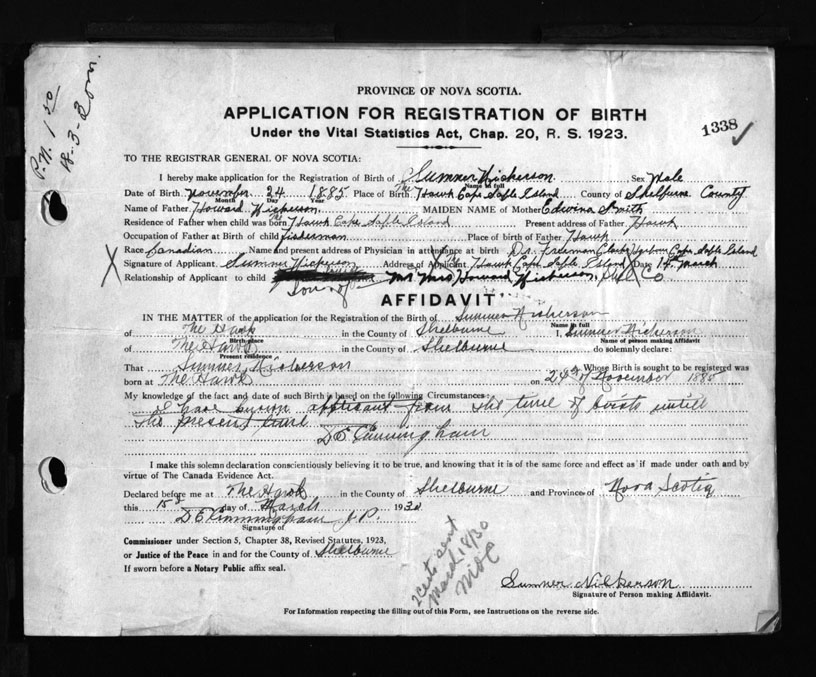 P.N. 1 50
18-3-30 m.
PROVINCE OF NOVA SCOTIA.
APPLICATION FOR REGISTRATION OF BIRTH
Under the Vital Statistics Act, Chap. 20, R. S. 1923.
1338 ✓
TO THE REGISTRAR GENERAL OF NOVA SCOTIA:
I hereby make application for the Registration of Birth of Sumner Nickerson Sex Male
Name in full
Date of Birth November 24 1885 Place of Birth The Hawk Cape Sable Island County of Shelburne County
Month Day Year
Name of Father Howard Nickerson MAIDEN NAME of Mother Edwina Smith
Residence of Father when child was born The Hawk Cape Sable Island Present address of Father Hawk
Occupation of Father at Birth of child fisherman Place of birth of Father Hawk
Race Canadian Name and present address of Physician in attendance at birth Dr. Freeman Clarks Harbor Cape Sable Island
X Signature of Applicant Sumner Nickerson Address of Applicant Hawk Cape Sable Island Date 15 March
Relationship of Applicant to child Son of Mr Mrs Howard Nickerson
AFFIDAVIT
IN THE MATTER of the application for the Registration of the Birth of Sumner Nickerson
Name in full
of The Hawk in the County of Shelburne I, Sumner Nickerson
Birth-place Name of person making Affidavit
of The Hawk in the County of Shelburne do solemnly declare:
Present residence
That Sumner Nickerson Whose Birth is sought to be registered was
born at The Hawk on 24th of November 1885
My knowledge of the fact and date of such Birth is based on the following Circumstances:
I have known applicant from the time of birth untill
the present time
D E Cunningham
I make this solemn declaration conscientiously believing it to be true, and knowing that it is of the same force and effect as if made under oath and by
virtue of The Canada Evidence Act.
Declared before me at The Hawk in the County of Shelburne and Province of Nova Scotia
this 15 day of March 1930
D E Cunningham J.P.
Signature of
Commissioner under Section 5, Chapter 38, Revised Statutes, 1923,
or Justice of the Peace in and for the County of Shelburne
If sworn before a Notary Public affix seal.
sent
March 18/30
Sumner Nickerson
Signature of Person making Affidavit.
For Information respecting the filling out of this Form, see Instructions on the reverse side.